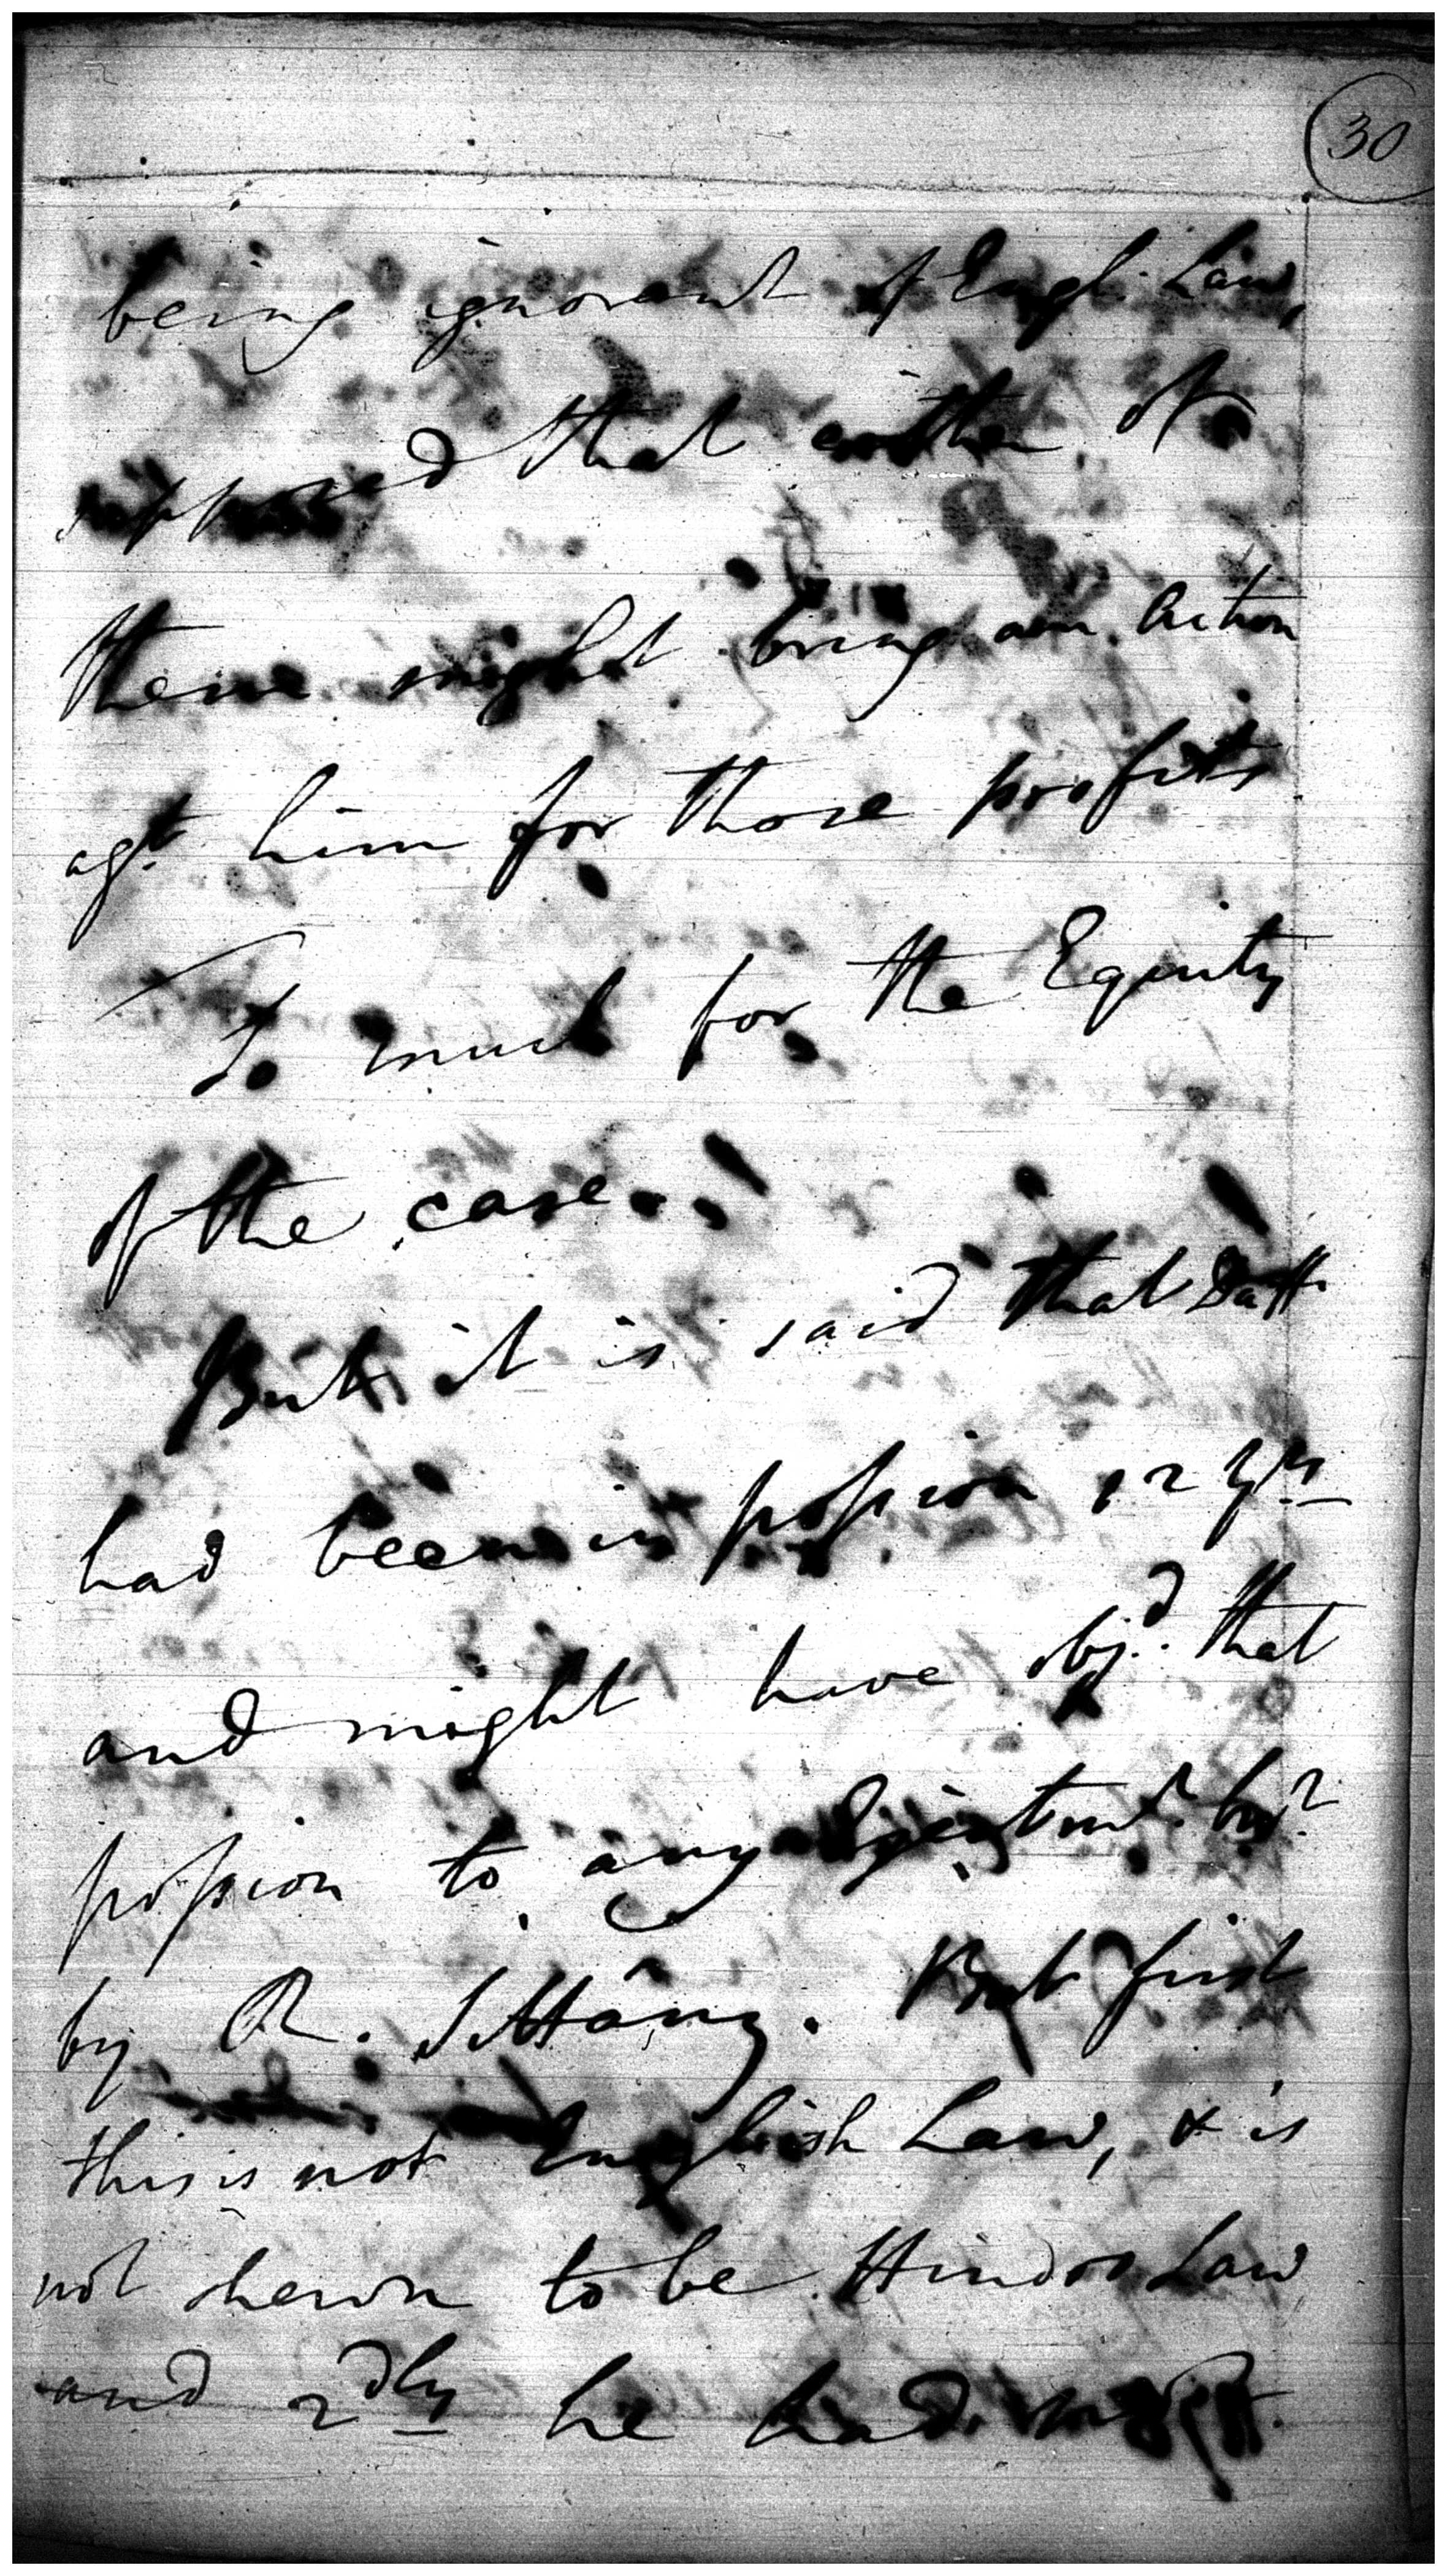 30
being ignorant of Engl. Law,
supposed that either of
them might bring an action
agt. him for those profits
So much for the Equity
of the case.
But it is said that Datt
had been in possion 12 yrs
and might have objd. that
possion to any Ejectmt. bt.
by R. Sittâny. But first
this is not English Law, & is
not shewn to be Hindoo Law
and 2dly he had